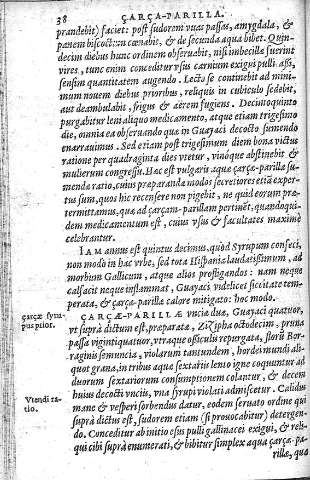 38 ÇARÇA-PARILLA.
prandebit) faciet: post sudorem vuas passas, amygdala, &
panem biscoctum cœnabit, & de secunda aqua bibet. Quin-
decim diebus hunc ordinem obseruabit, nisi imbecille fuerint
vires, tunc enim conceditur vsus carnium exigui pulli assi,
sensim quantitatem augendo. Lecto se continebit ad mini-
mum nouem diebus prioribus, reliquis in cubiculo sedebit,
aut deambulabit, frigus & aërem fugiens. Decimoquinto
purgabitur leni aliquo medicamento, atque etiam trigesimo
die, omnia ea obseruando quæ in Guayaci decocto sumendo
enarrauimus. Sed etiam post trigesimum diem bona victus
ratione per quadraginta dies vtetur, vinóque abstinebit &
mulierum congressu. Hæc est vulgaris aquæ çarça-parillæ su-
menda ratio, cuius præparandæ modos secretiores etiã exper-
tus sum, quos hîc recensere non pigebit, ne quid eorum præ-
termittamus, quæ ad çarçam-parillam pertinẽt, quandoqui-
dem medicamentum est, cuius vsus & facultates maximè
celebrantur.
IAM annus est quintus decimus, quòd Syrupum confeci,
non modò in hac vrbe, sed tota Hispania laudatissimum, ad
morbum Gallicum, atque alios profligandos: nam neque
calfacit neque inflammat, Guayaci videlicet siccitate tem-
perata, & çarça-parillæ calore mitigato: hoc modo.
çarçæ syru-
pus prior.
ÇARÇÆ-PARILLÆ vnciæ duæ, Guayaci quatuor,
vt suprà dictum est, præparatæ, Zizipha octodecim, pruna
passa vigintiquatuor, vtraque ossiculis repurgata, florũ Bor-
raginis semuncia, violarum tantundem, hordei mundi ali-
quot grana, in tribus aquæ sextariis lento igne coquuntur ad
duorum sextariorum consumptionem colantur, & decem
huius decocti vnciis, vna syrupi violati admiscetur. Calidus
Vtendi ra-
tio.
mane & vesperi sorbendus datur, eodem seruato ordine qui
suprà dictus est, sudorem etiam (si prouocabitur) detergen-
do. Conceditur ab initio esus pulli gallinacei exigui, & reli-
qui cibi suprà enumerati, & bibitur simplex aqua çarçæ-pa-
rillæ, quæ